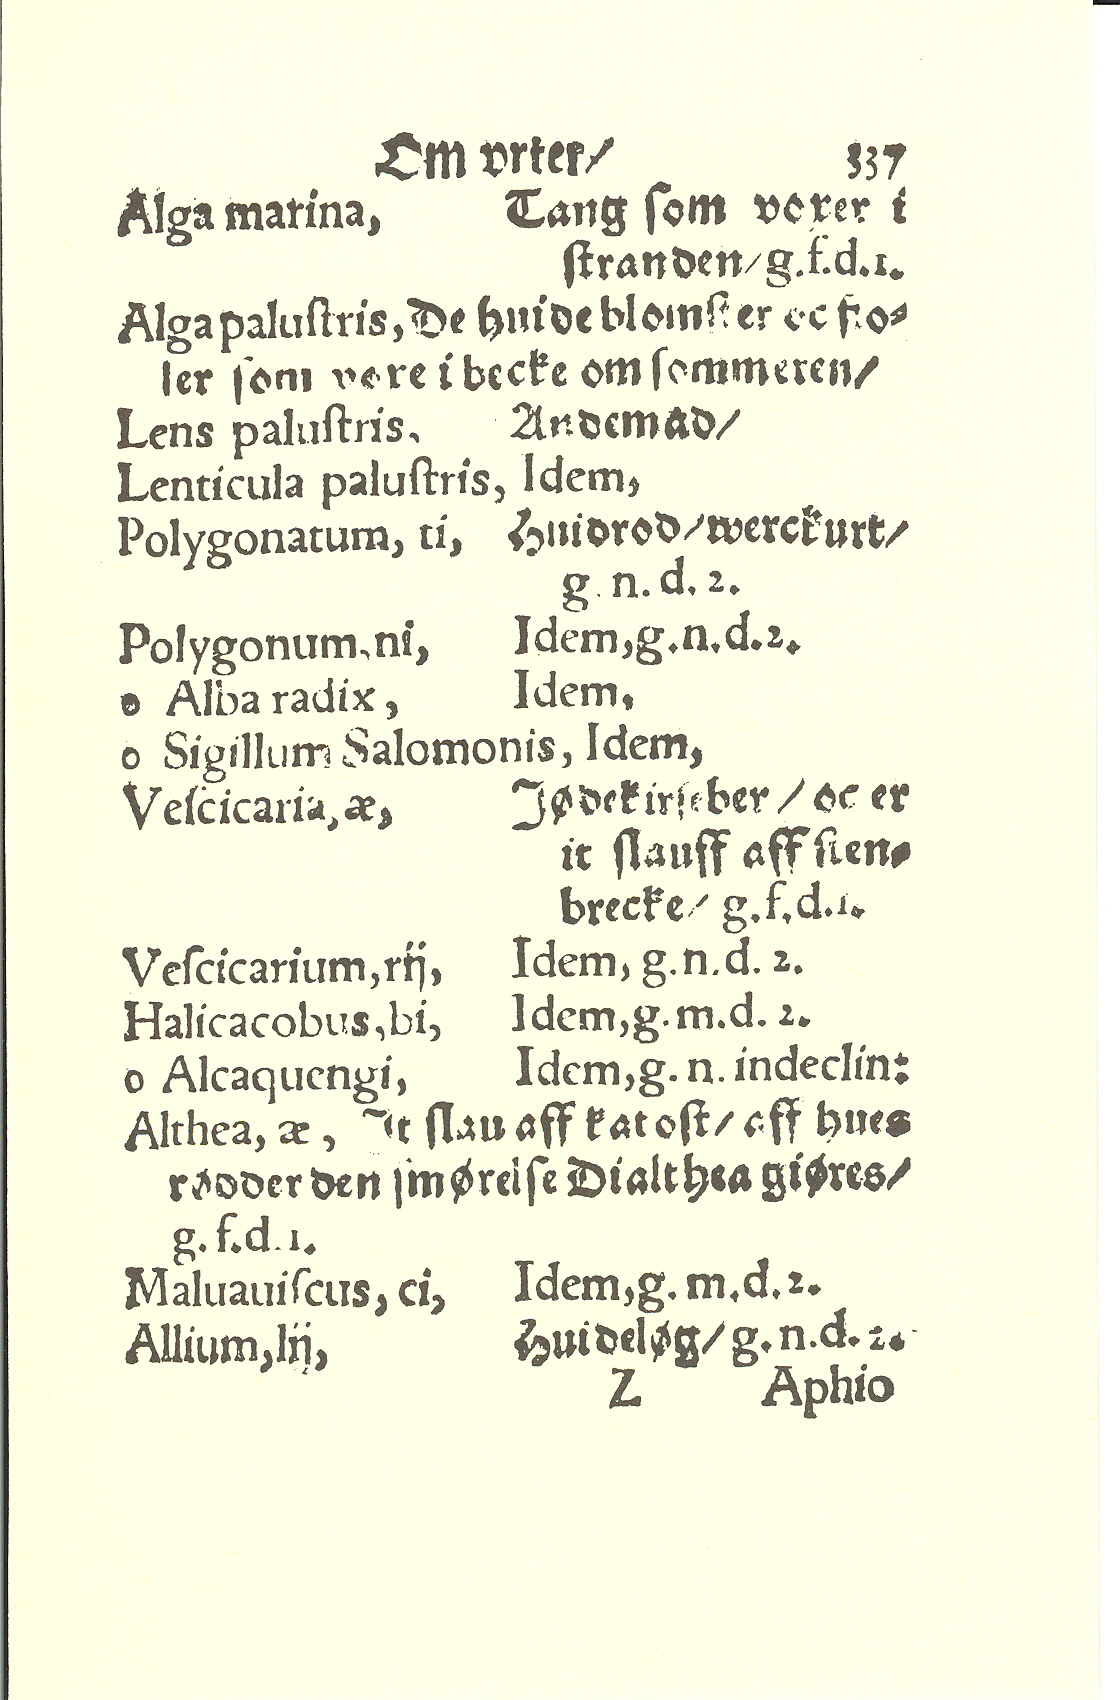 Om vrter/ 337
Alga marina, Tang ſom voxer i
ſtranden/g.f.d.1.
Alga paluſtris, De huide blomſter oc ſto⸗
ler ſom vore i becke om ſommeren/
Lens paluſtris. Andemad/
Lenticula paluſtris, Idem,
Polygonatum, ti, Huidrod/werckurt/
g. n. d. 2.
Polygonum, ni, Idem,g.n.d.2.
o Alba radix, Idem,
o Sigillum Salomonis, Idem,
Veſcicaria,æ, Jødekirſeber / oc er
it ſlauff aff ſten⸗
brecke/ g.f.d.1.
Veſcicarium,rij, Idem, g.n.d. 2.
Halicacobus,bi, Idem,g.m.d. 2.
o Alcaquengi, Idem,g. n. indeclin:
Althea, æ, It ſlau aff katoſt/ aff hues
rødder den ſmørelſe Dialthea giøres/
g. f.d.1.
Maluauiſcus, ci, Idem,g. m.d.2.
Allium,lij, Huideløg/ g.n.d.2.
Z Aphio